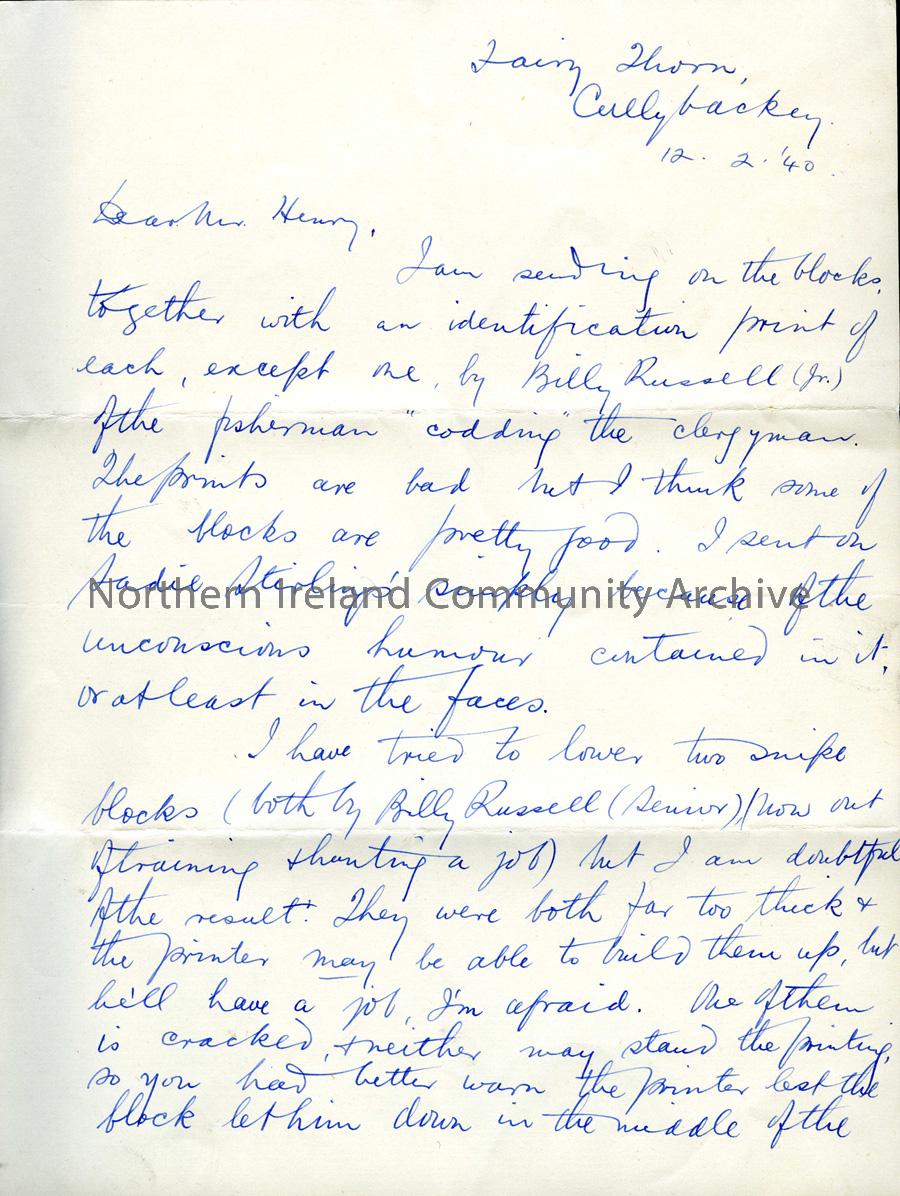 Fairy Thorn,
Cullybackey.
12. 2. '40.
Dear Mr. Henry,
I am sending on the blocks,
together with an identification print of
each, except one, by Billy Russell (Jr.)
of the fisherman "codding" the clergyman.
The prints are bad but I think some of
the blocks are pretty good. I sent on
Sadie Stirling's simply because of the
Northern Ireland Community Archive
unconscious humour contained in it,
or at least in the faces.
I have tried to lower two snipe
blocks (both by Billy Russell (Senior) (now out
of training & hunting a job) but I am doubtful
of the result. They were both far too thick &
the printer may be able to build them up, but
he'll have a job, I'm afraid. One of them
is cracked, & neither may stand the printing,
so you had better warn the printer lest the
block let him down in the middle of the